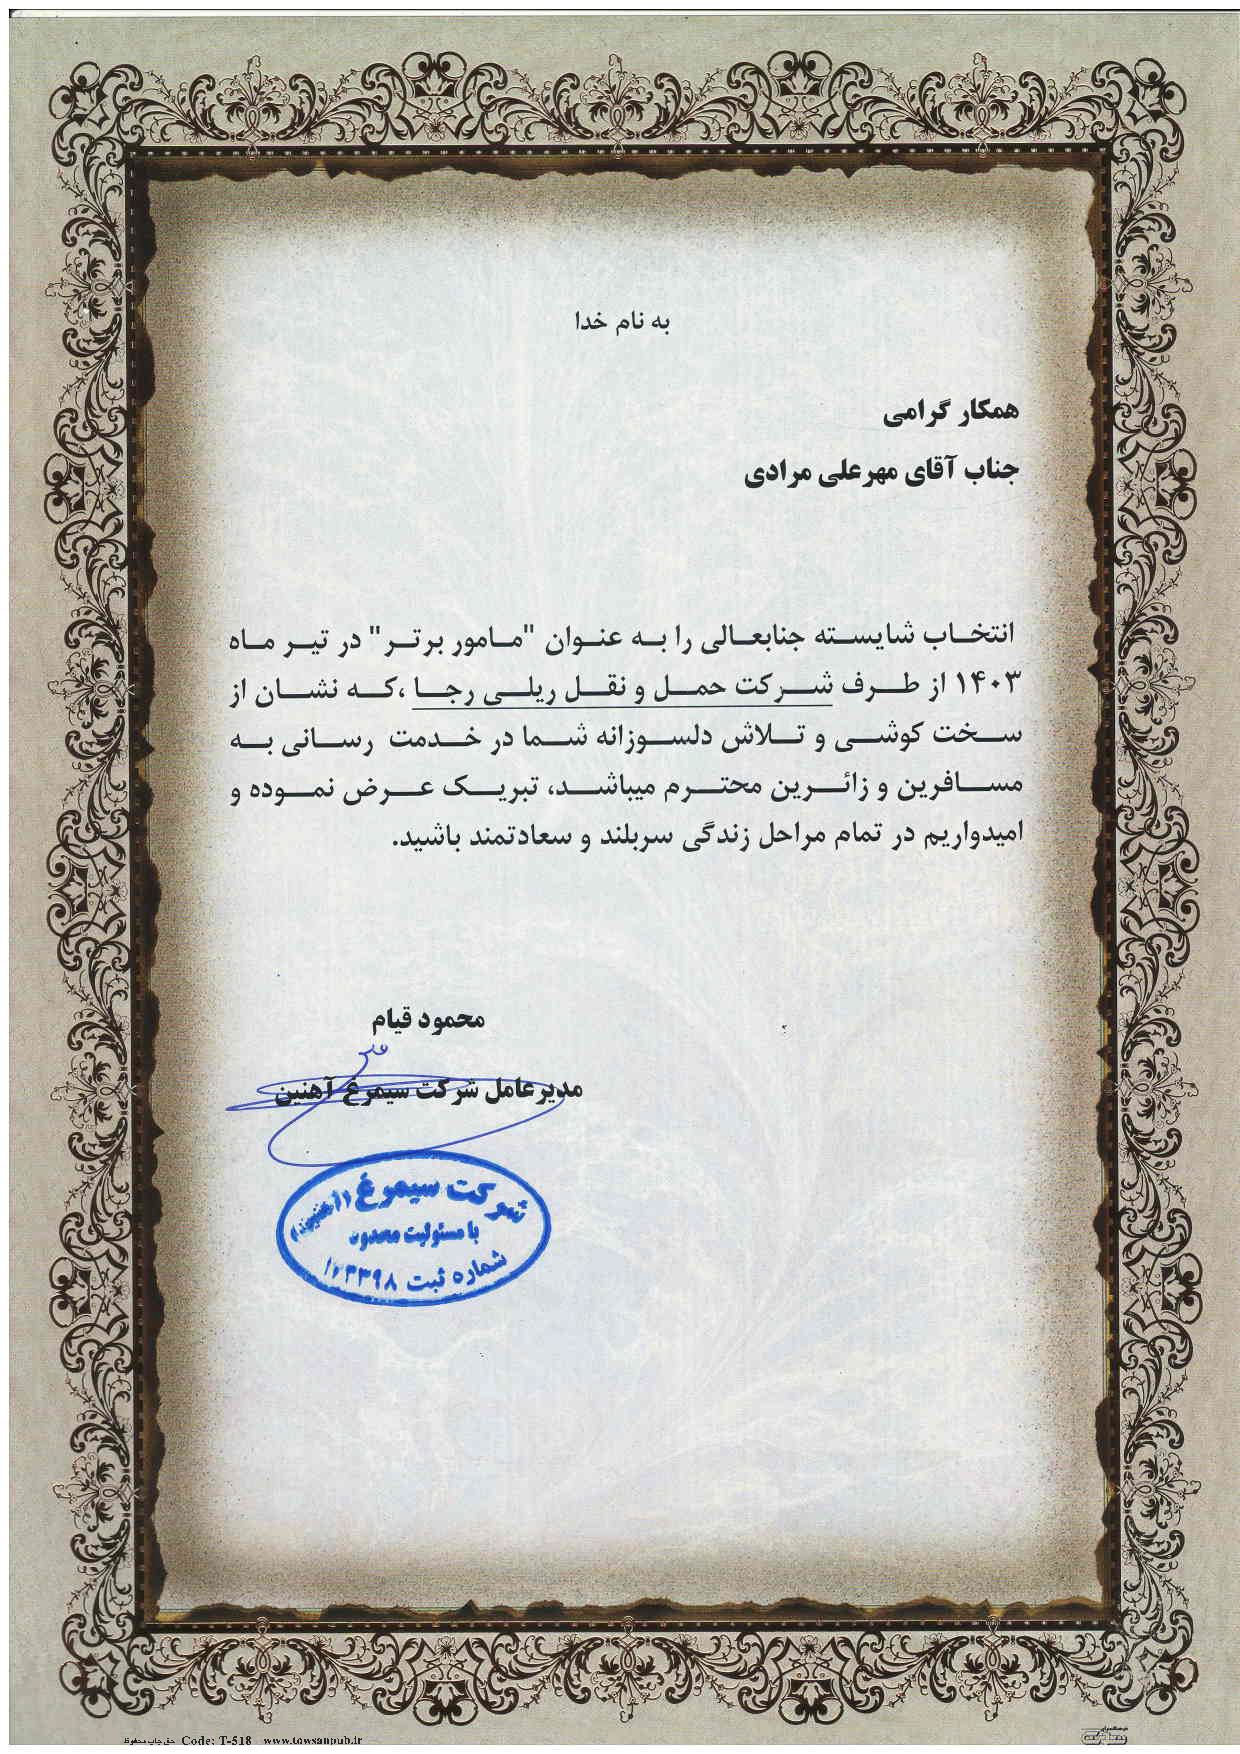 به نام خدا
همکار گرامی
جناب آقای مهرعلی مرادی
انتخاب شایسته جنابعالی را به عنوان "مامور برتر" در تیر ماه
۱۴۰۳ از طرف شرکت حمل و نقل ریلی رجا ،که نشان از
سخت کوشی و تلاش دلسوزانه شما در خدمت رسانی به
مسافرین و زائرین محترم میباشد، تبریک عرض نموده و
امیدواریم در تمام مراحل زندگی سربلند و سعادتمند باشید.
محمود قیام
مدیرعامل شرکت سیمرغ آهنین
شرکت سیمرغ (آهنین)
با مسئولیت محدود
شماره ثبت
حق چاپ محفوظ Code: T-518 www.towsanpub.ir